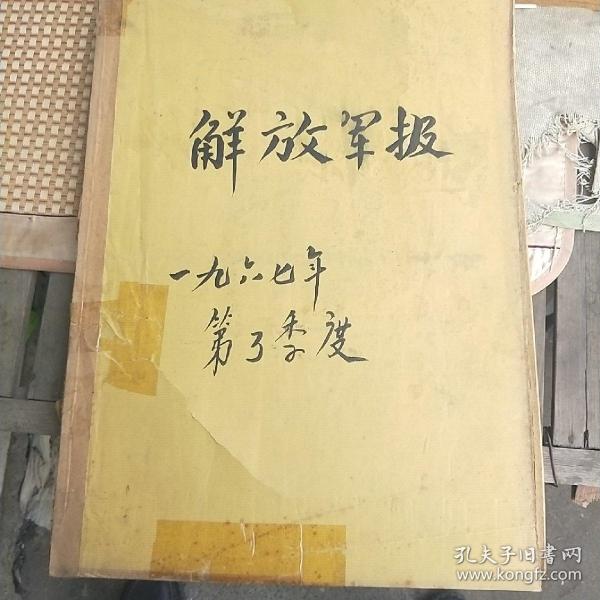 解放军报
一九六七年
第3季度
孔夫子旧書网
www.kongfz.com